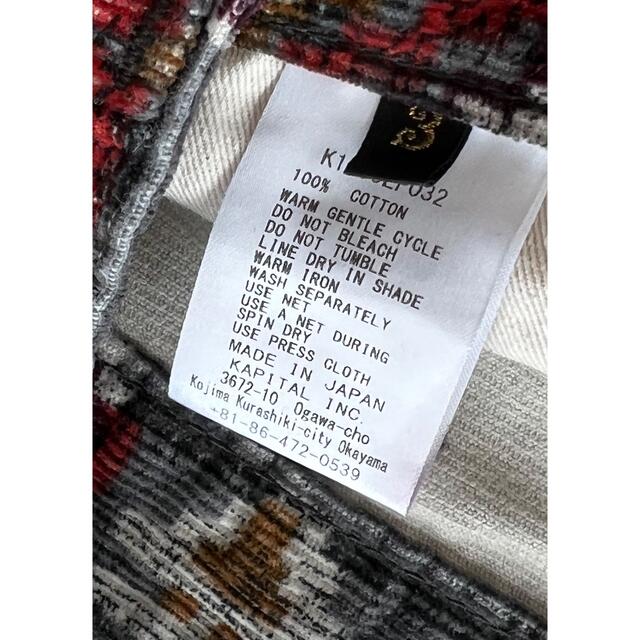 100% COTTON
WARM GENTLE CYCLE
DO NOT BLEACH
DO NOT TUMBLE
LINE DRY IN SHADE
WARM IRON
WASH SEPARATELY
USE NET
USE A NET DURING
SPIN DRY
USE PRESS CLOTH
MADE IN JAPAN
KAPITAL INC.
3672-10 Ogawa-cho
Kojima Kurashiki-city Okayama
+81-86-472-0539